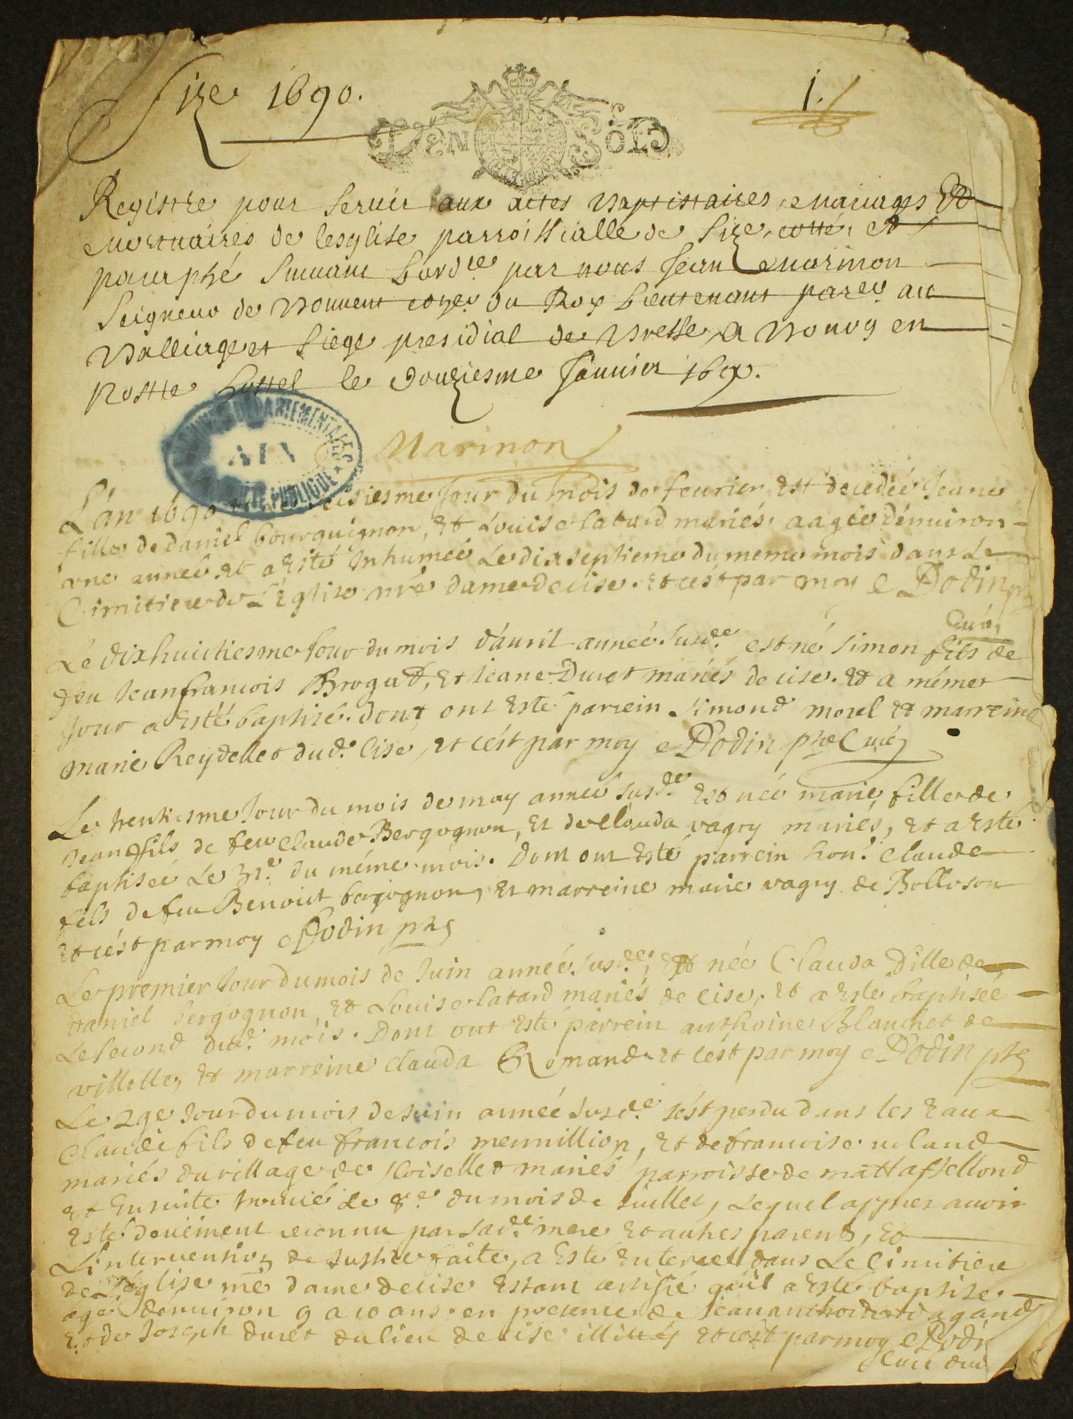 Size 1690.
1.
DEN SOLS
Registre pour seruir aux actes baptistaires, mariages Et
mortuaires de lesglise parroissialle de Size, cotté, et
paraphé suiuant L'ord.e par nous Jean Marinon
Seigneur de du Roy Lieutenant par.er au
Balliage et Siege presidial de Bresse, A Bourg en
Nostre hostel le douziesme Januier 1690.
Marinon
ARCHIVES DEPARTEMENTALES
AIN
PUBLIQUE
L'an 1690 Jour du mois de feurier Est decedée Jeane
fille de Daniel bourguignon, Et Louise Catard mariés aagée d'enuiron
une année, et a Esté Inhumée Le dixseptieme du meme mois dans Le
Cimitiere de L'Eglise nre dame de cise. Et c'est par moy Dodin
Curé
Le dixhuitiesme Jour du mois d'auril année susd.e est né simon fils de
Jeanfrancois Brogat, Et Jeane Duret mariés de cise. Et a méme
Jour a Esté baptisé. dont ont Este parrein simond morel Et marreine
marie Reydellet dud. Cise, Et c'est par moy Dodin pbre Curé
Le trentiesme Jour du mois de may année susd.e Est née marie, fille de
Jean fils de feu Claude Bergognon, Et de Clauda vagry mariés, Et a Esté
baptisée Le 31.e du méme mois. Dont ont Esté parrein hon. Claude
fils de feu Benoict bergognon, Et marreine marie vagry de Bolloson
Et c'est par moy Dodin pbre
Le premier Jour du mois de Juin année susd.ee, Est née Clauda fille de
Daniel bergognon, Et Louise Catard mariés de cise, Et a Este baptisée
Le second dud. mois. Dont ont Este parrein anthoine Blanchet de
villette, Et marreine Clauda Romand Et c'est par moy Dodin pbre
Le 29e Jour du mois de Juin année susd.e s'est perdu dans les Eaux
Claude fils de feu francois mermillion, Et de francoise
mariés du village de Coiselet mariés parroisse de mattaffellond
et Ensuite trouué le 8.e du mois de Juillet, Lequel appres auoir
Esté deuëment reconnu par sad.e mere Et autres parents, Et
L'interuention de Justice faite, a Este Enterré dans Le Cimitiere
de L'Eglise nre dame de cise Estant certifié qu'il a Este baptisé
agé denuiron 9 a 10 ans. en presence de Jean
Et de Joseph duret du lieu de cise illittés Et c'est par moy Dodin
Curé dud